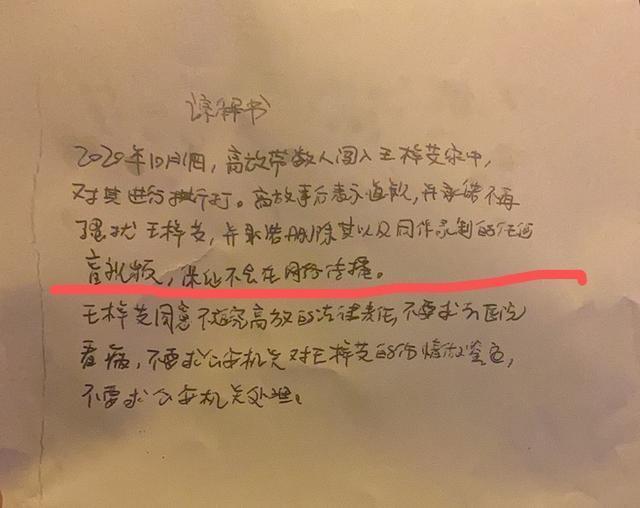 谅解书
2020年10月1日，高放带数人闯入王梓芠家中，
对其进行殴打。高放事后表示道歉，并承诺不再
骚扰王梓芠，并承诺删除其以及同伴录制的任何
音视版，保他不会在网络传播。
王梓芠同意不追究高放的法律责任，不要求去医院
看病，不要求公安机关对王梓芠的伤情做鉴定，
不要求公安机关处理。